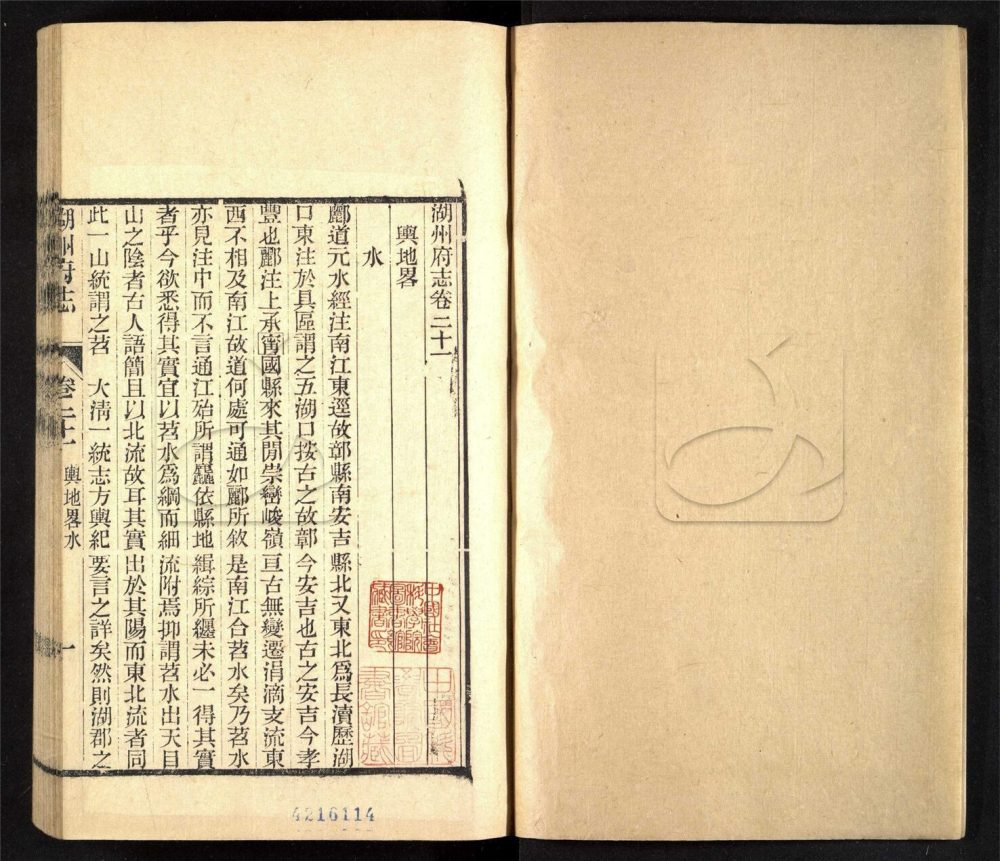 湖州府志卷二十一
輿地畧
水
酈道元水經注南江東逕故鄣縣南安吉縣北又東北爲長瀆歷湖
口東注於具區謂之五湖口按古之故鄣今安吉也古之安吉今孝
豐也酈注上承甯國縣來其閒崇巒峻嶺亘古無變遷涓滴支流東
西不相及南江故道何處可通如酈所敘是南江合苕水矣乃苕水
亦見注中而不言通江殆所謂 依縣地緝綜所纏未必一得其實
者乎今欲悉得其實宜以苕水爲綱而細流附焉抑謂苕水出天目
山之陰者古人語簡且以北流故耳其實出於其陽而東北流者同
此一山統謂之苕 大淸一統志方輿紀要言之詳矣然則湖郡之
湖州府志 卷二十一 輿地畧水 一
中國社會科學院圖書館藏書印
4216114